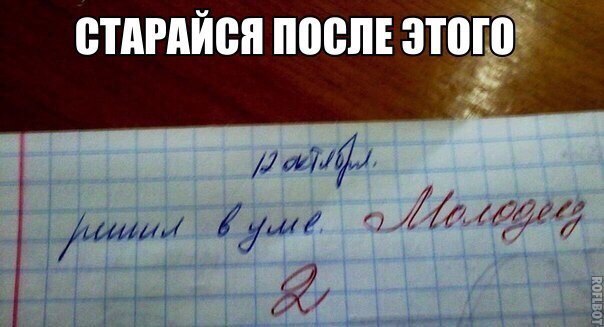 СТАРАЙСЯ ПОСЛЕ ЭТОГО
12 октября.
решил в уме. Молодец
2
ROFLBOT